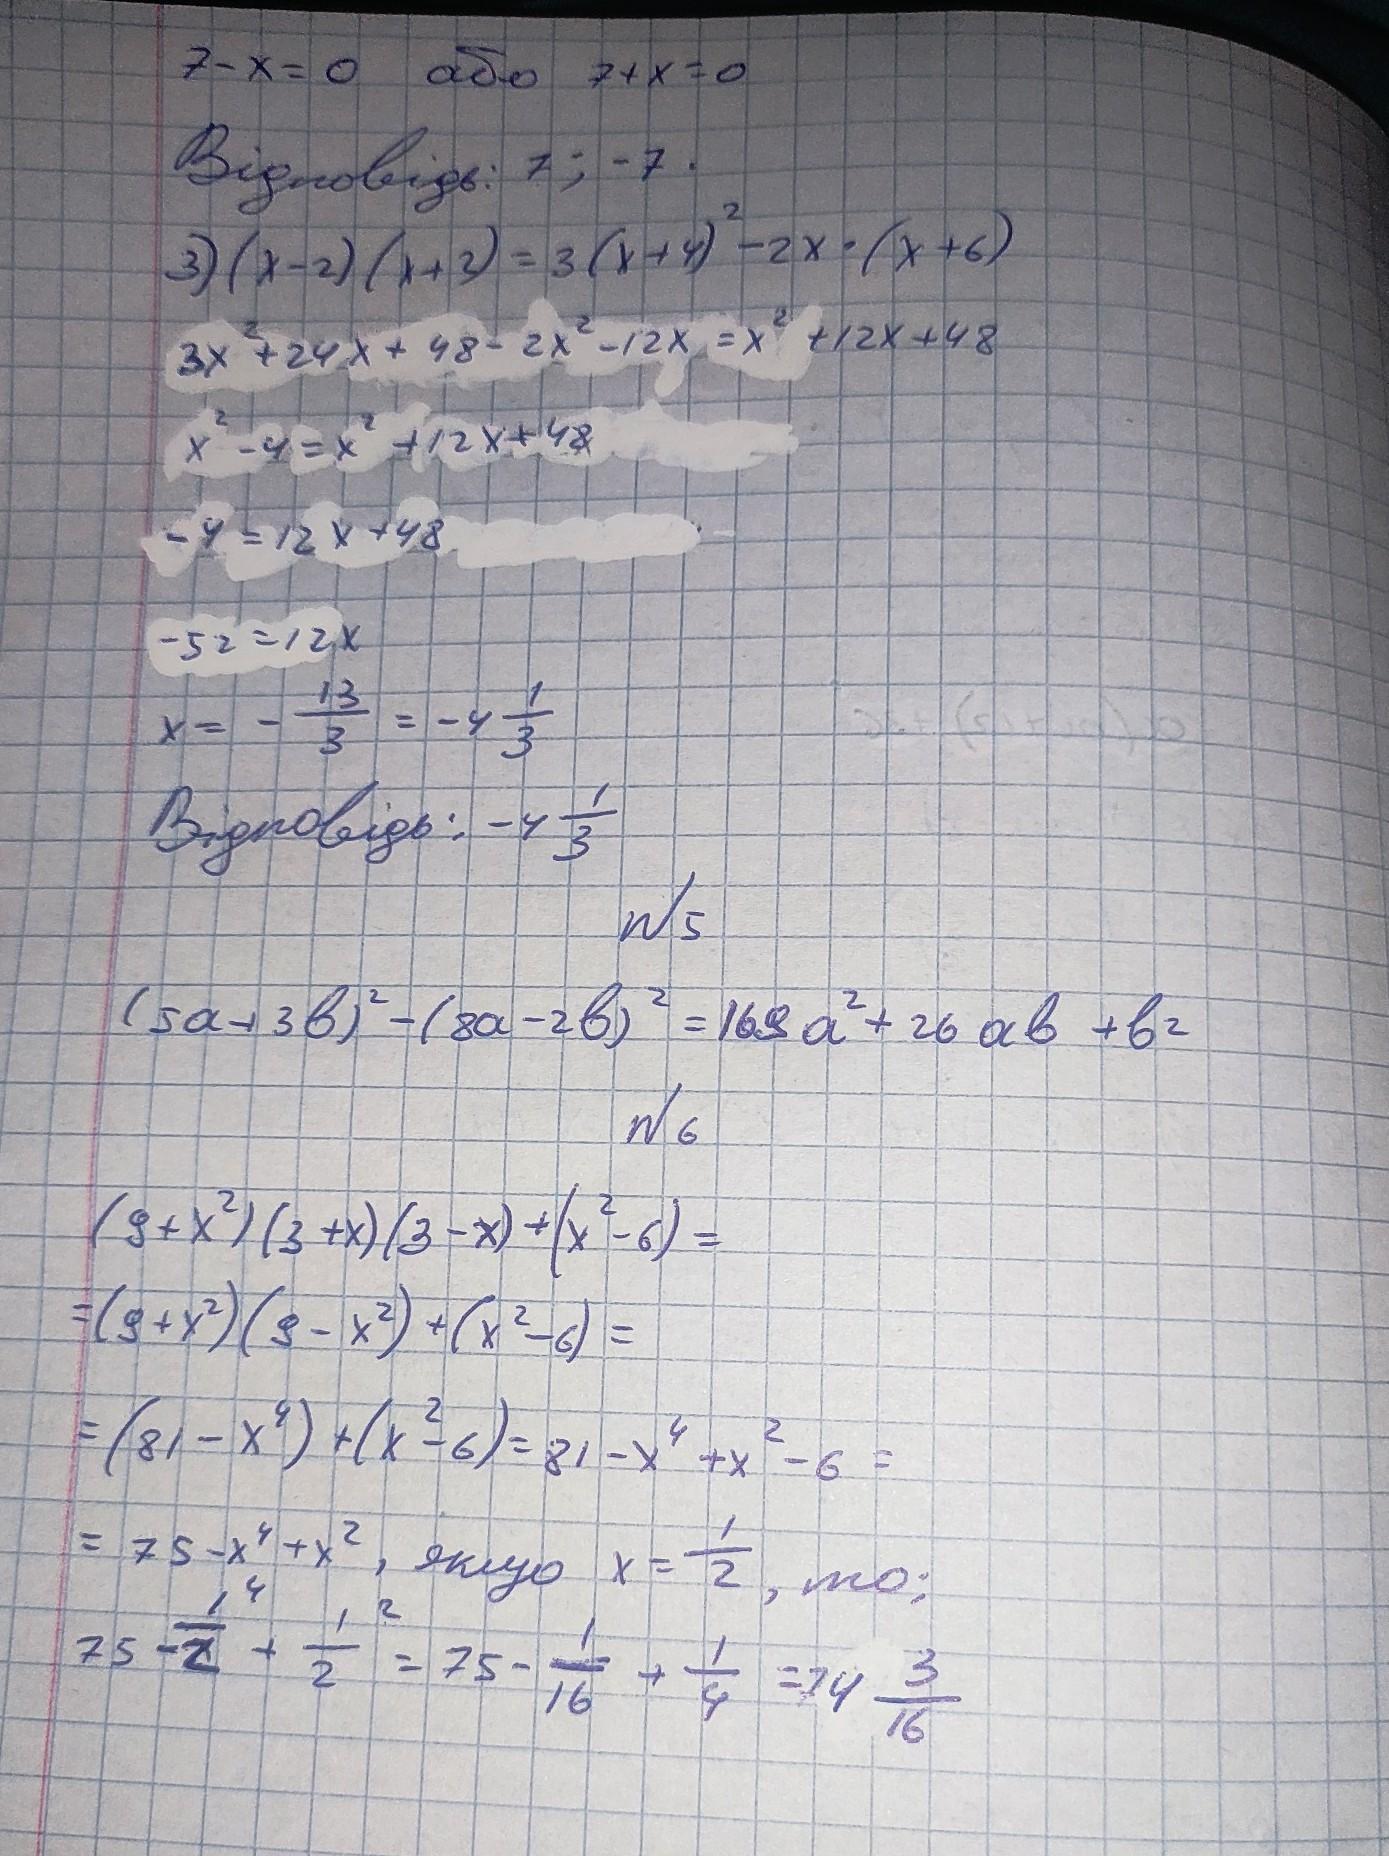 7-x=0 або 7+x=0
Відповідь: 7; -7.
3) (x-2)(x+2)=3(x+4)²-2x·(x+6)
3x²+24x+48-2x²-12x=x²+12x+48
x²-4=x²+12x+48
-4=12x+48
-52=12x
x=-13/3=-4 1/3
Відповідь: -4 1/3
№5
(5a+3b)²-(8a-2b)²=169a²+26ab+b2
№6
(9+x²)(3+x)(3-x)+(x²-6)=
=(9+x²)(9-x²)+(x²-6)=
=(81-x⁴)+(x²-6)=81-x⁴+x²-6=
=75-x⁴+x², якщо x=1/2, то:
75-1/2⁴+1/2²=75-1/16+1/4=74 3/16